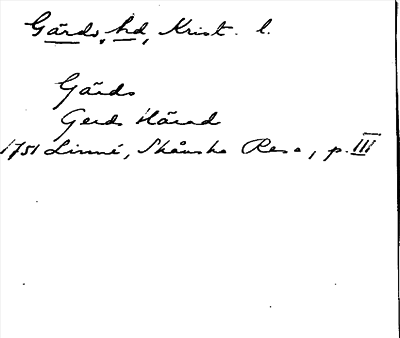 Gärds, hd, Krist. l.
Gärds
Gerds Härad
1751 Linné, Skånska Resa, p. III